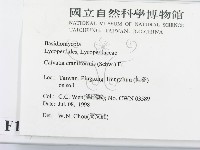 國立自然科學博物館
NATIONAL MUSEUM OF NATURAL SCIENCE
TAICHUNG, TAIWAN, R.O. CHINA
Basidiomycota
Lycoperdales, Lycoperdaceae
Calvatia craniiformis (Schw.) F.
Loc.: Taiwan, Pingtung, Hengchun
on soil
Col.: C.C. Wen No. CWN 03589
Date: Jul. 08, 1998
Det.: W.N. Chou
F1